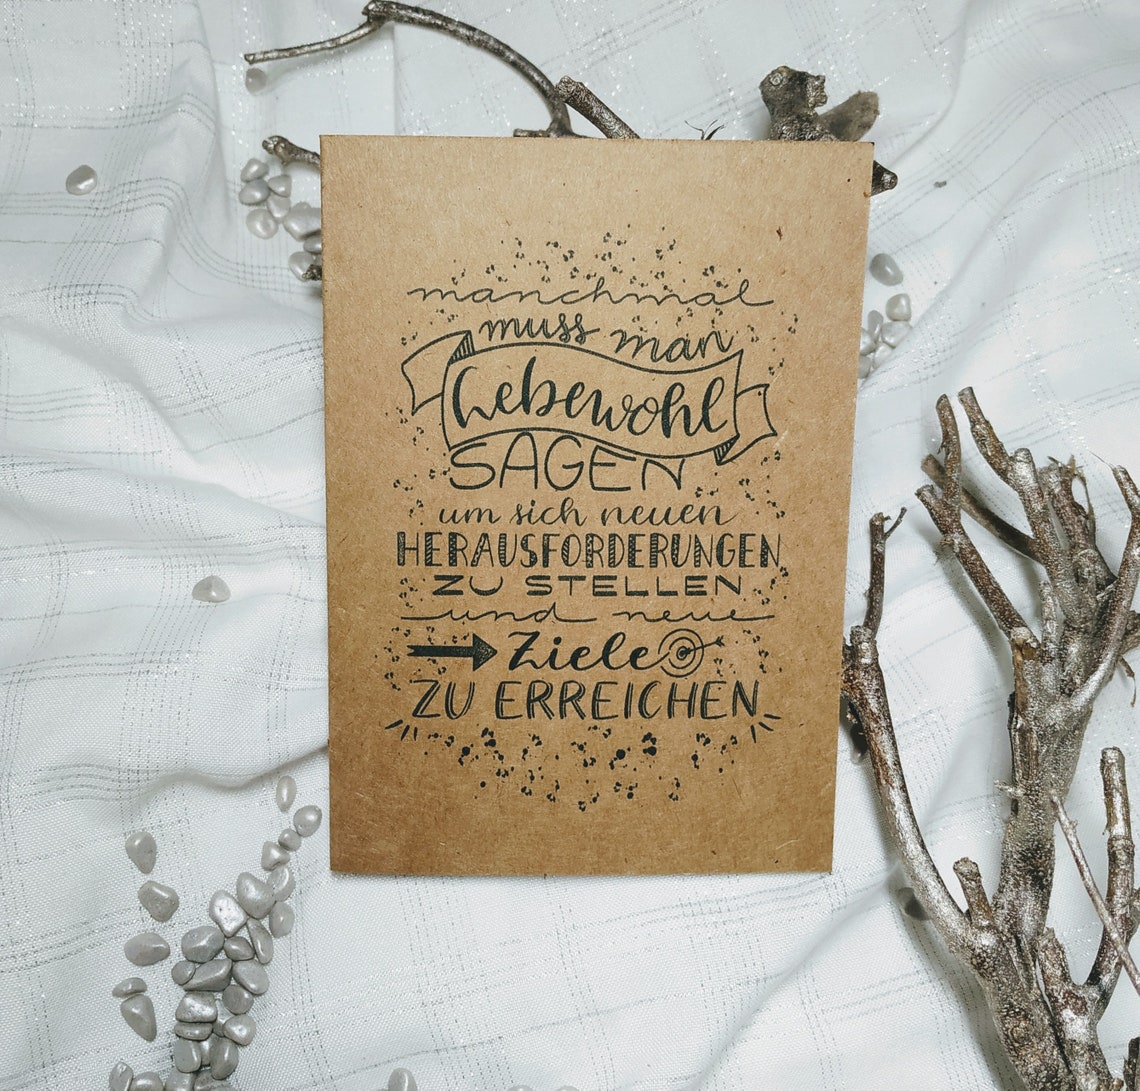 manchmal
muss man
Lebewohl
SAGEN
um sich neuen
HERAUSFORDERUNGEN
ZU STELLEN
und neue
Ziele
ZU ERREICHEN